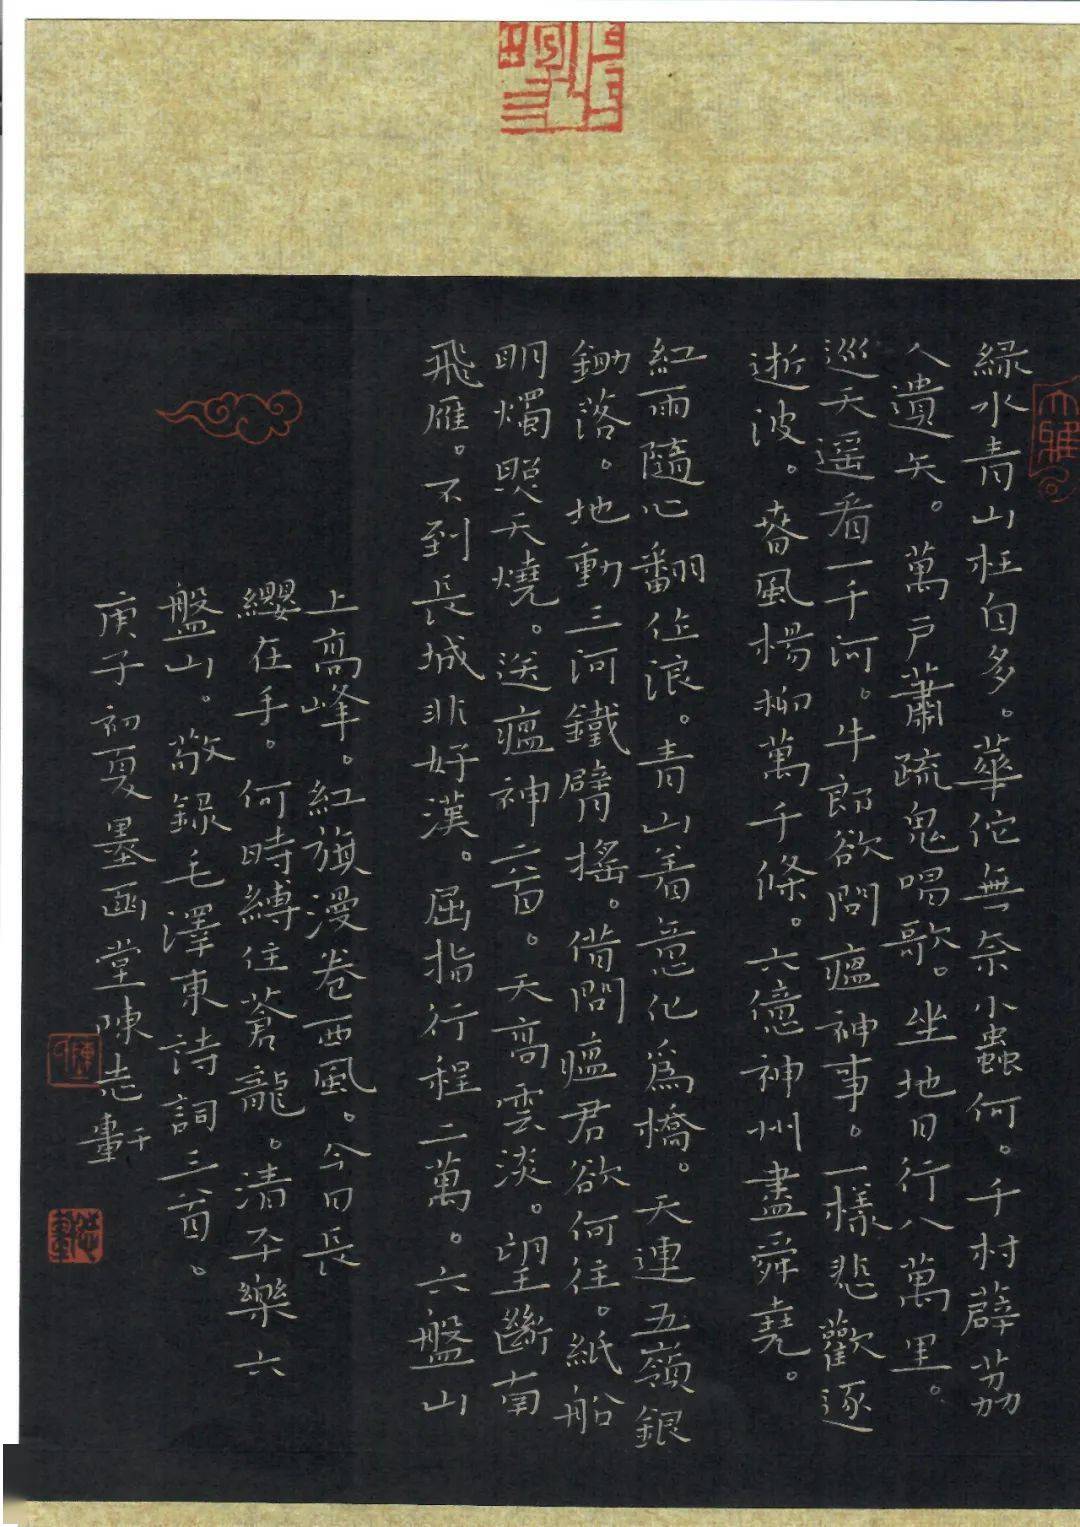 緑水青山枉自多。華佗無奈小蟲何。千村薜荔
人遺矢。萬戸蕭疏鬼唱歌。坐地日行八萬里。
巡天遥看一千河。牛郎欲問瘟神事。一樣悲歡逐
逝波。春風楊柳萬千條。六億神州盡舜堯。
紅雨隨心翻作浪。青山着意化為橋。天連五嶺銀
鋤落。地動三河鐵臂摇。借問瘟君欲何往。紙船
明燭照天燒。送瘟神二首。天高雲淡。望斷南
飛雁。不到長城非好漢。屈指行程二萬。六盤山
上高峰。紅旗漫卷西風。今日長
纓在手。何時縛住蒼龍。清平樂六
盤山。敬録毛澤東詩詞三首。
庚子初夏墨函堂陳志軒
大雅